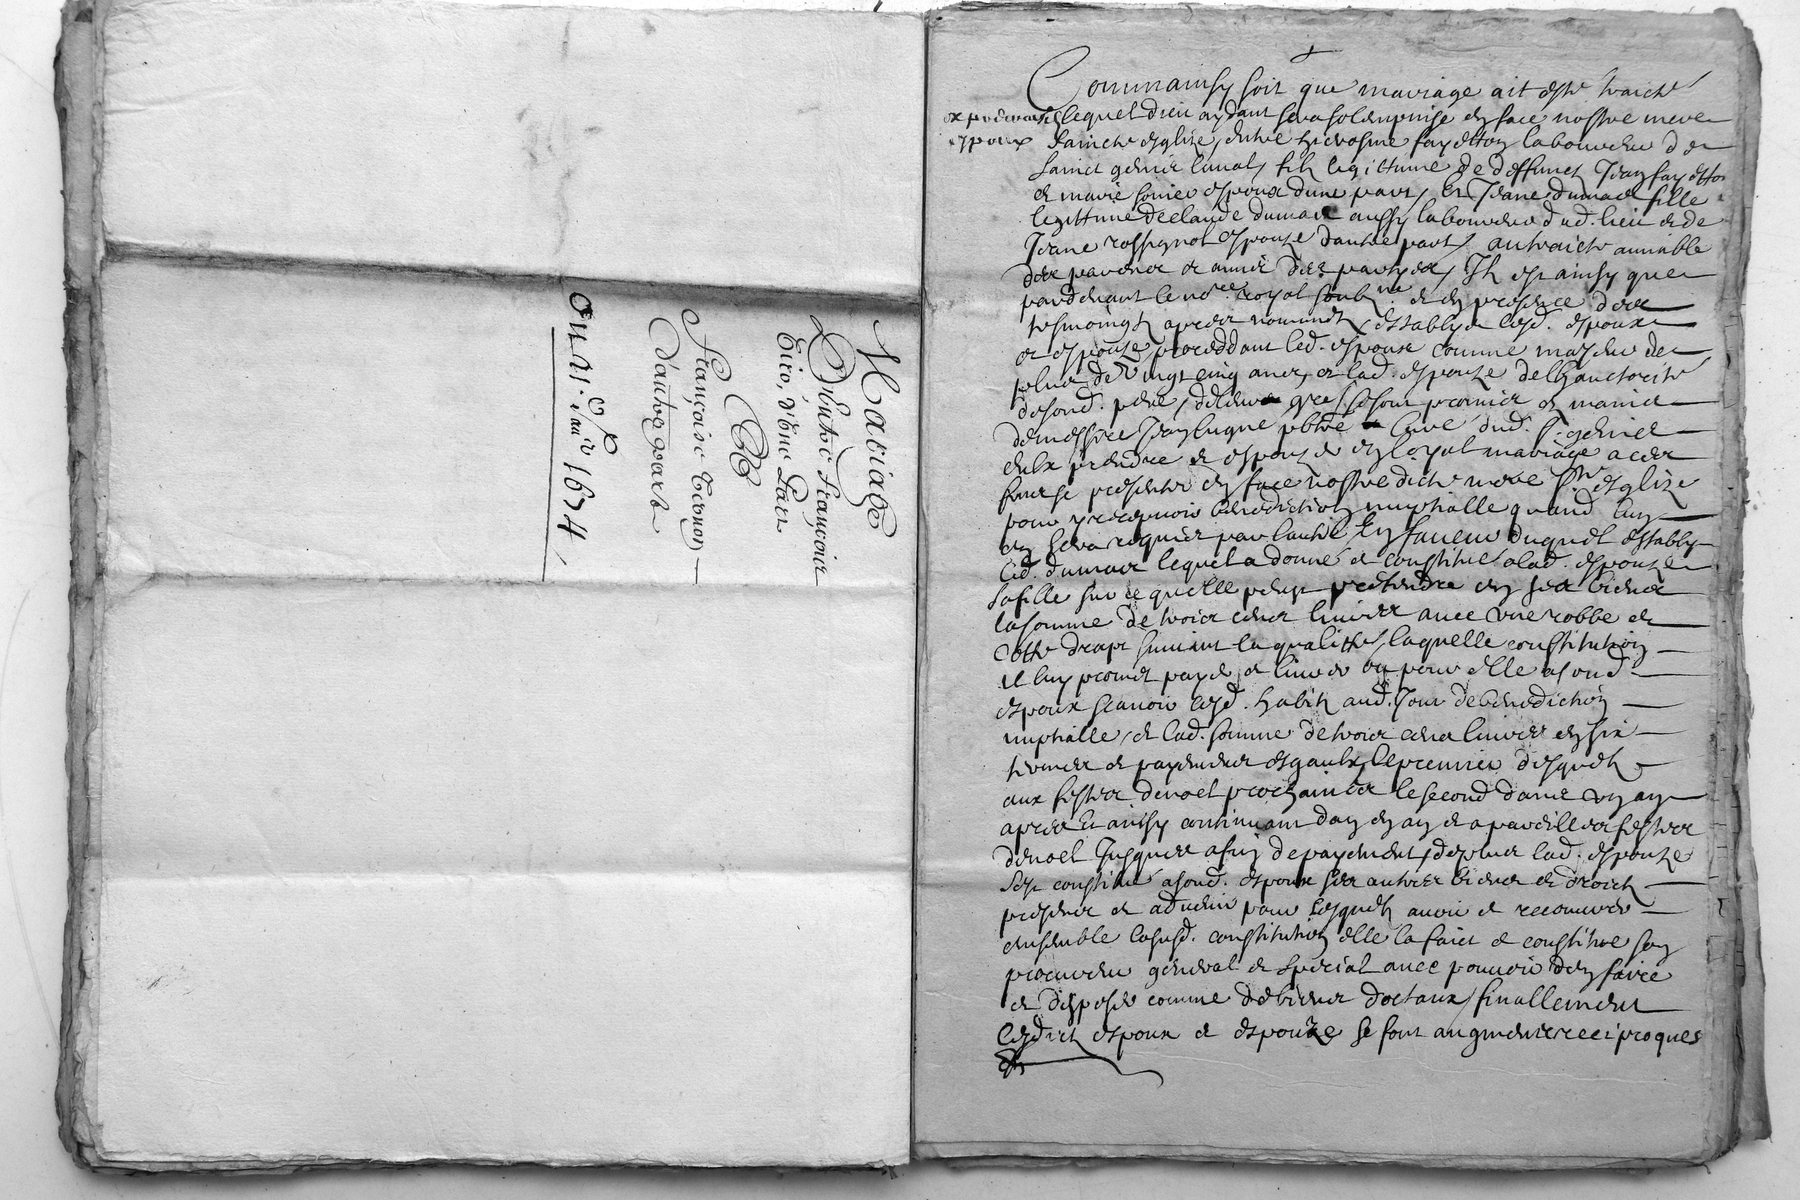 Mariage
D'entre François
Giro, d'une part
Et
Françoise Tornon
d'autre part
Du 21. Janr 1674
Commainsy soit que mariage ait esté traicté
lequel dieu aydant sera solempnise en face nostre mere
Saincte esglize, entre hierosme fayetton laboureur de
Sainct genis laval, filz legittime de deffunct Jean fayetton
et marie espoux dune part, Et Jeane dumas fille
legittime de claude dumas aussy laboureur dud. lieu et de
Jeane rossignol espouze dautre part, au traicte amiable
des parens et amis des partyes, Il est ainsy que
pardevant le nore royal soubzne et en presence des
tesmoingz apres nommez, establys lesd. espoux
et espouze, proceddant led. espoux comme majeur de
plus de vingt cinq ans, et lad. espouze de lhauctorité
de sond. pere, de leurs gres se sont promis en mains
de messire Jean pbtre Curé dud. St. genis
eulx prendre et espouzer en loyal mariage a ces
fins se presenter en face nostre dicte mere Ste esglize
pour y recepvoir benediction nuptialle quand lung
en sera requis par lautre, En faveur duquel estably
led. dumas lequel a donné et constitué a lad. espouze
sa fille sur ce quelle peust pretendre en ses biens
la somme de trois cens livres avec une robbe et
cotte drapt suivant la qualitté, laquelle constitution
il luy promet payer et livrer ou pour elle a sond.
espoux scavoir lesd. habitz aud. Jour de benediction
nuptialle, et lad. somme de trois cens livres en six
termes et payemens esgaulx, le premier desquelz
aux festes de noel prochaines le second dans ung an
apres Et ainsy continuant dan en an et a pareilles festes
de noel Jusques a fin de payement, de plus lad. espouze
sest constitué a sond. espoux ses autres biens et droictz
presens et advenir pour lesquelz avoir et recouvrer
ensemble lasusd. constitution elle la faict et constitue son
procureur general et special avec pouvoir den faire
et disposer comme de biens doctaux, finallement
lesdictz espoux et espouze se font augments reciproques